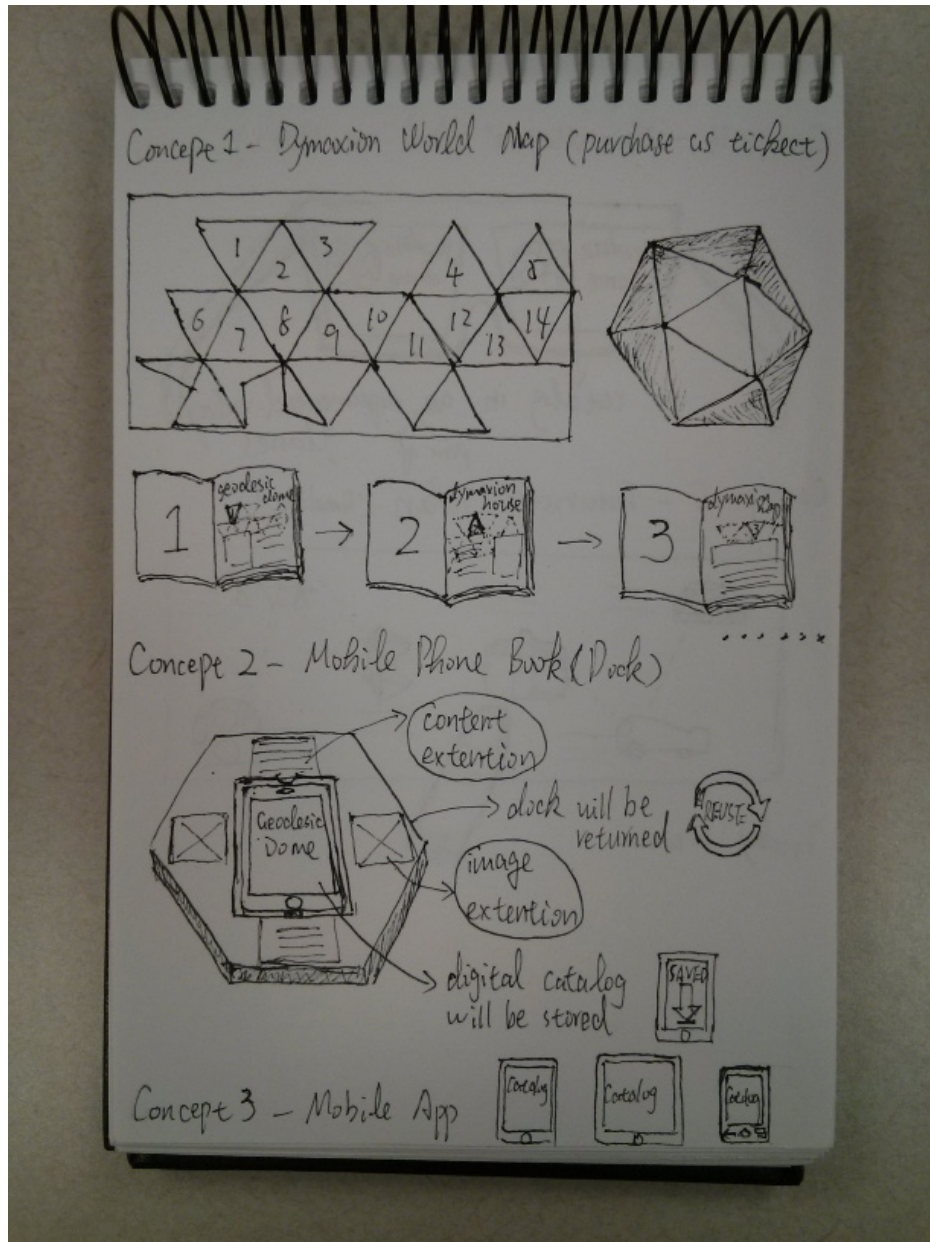 Concept 1 - Dymaxion World Map (purchase as tickect)
1 2 3 4 5
6 7 8 9 10 11 12 13 14
1
geodesic dome
2
dymaxion house
A
3
dymaxion map
Concept 2 - Mobile Phone Book (Dock)
content
extention
Geodesic
Dome
dock will be
returned
REUSE
image
extention
digital catalog
will be stored
SAVED
Concept 3 - Mobile App
Catalog
Catalog
Catalog